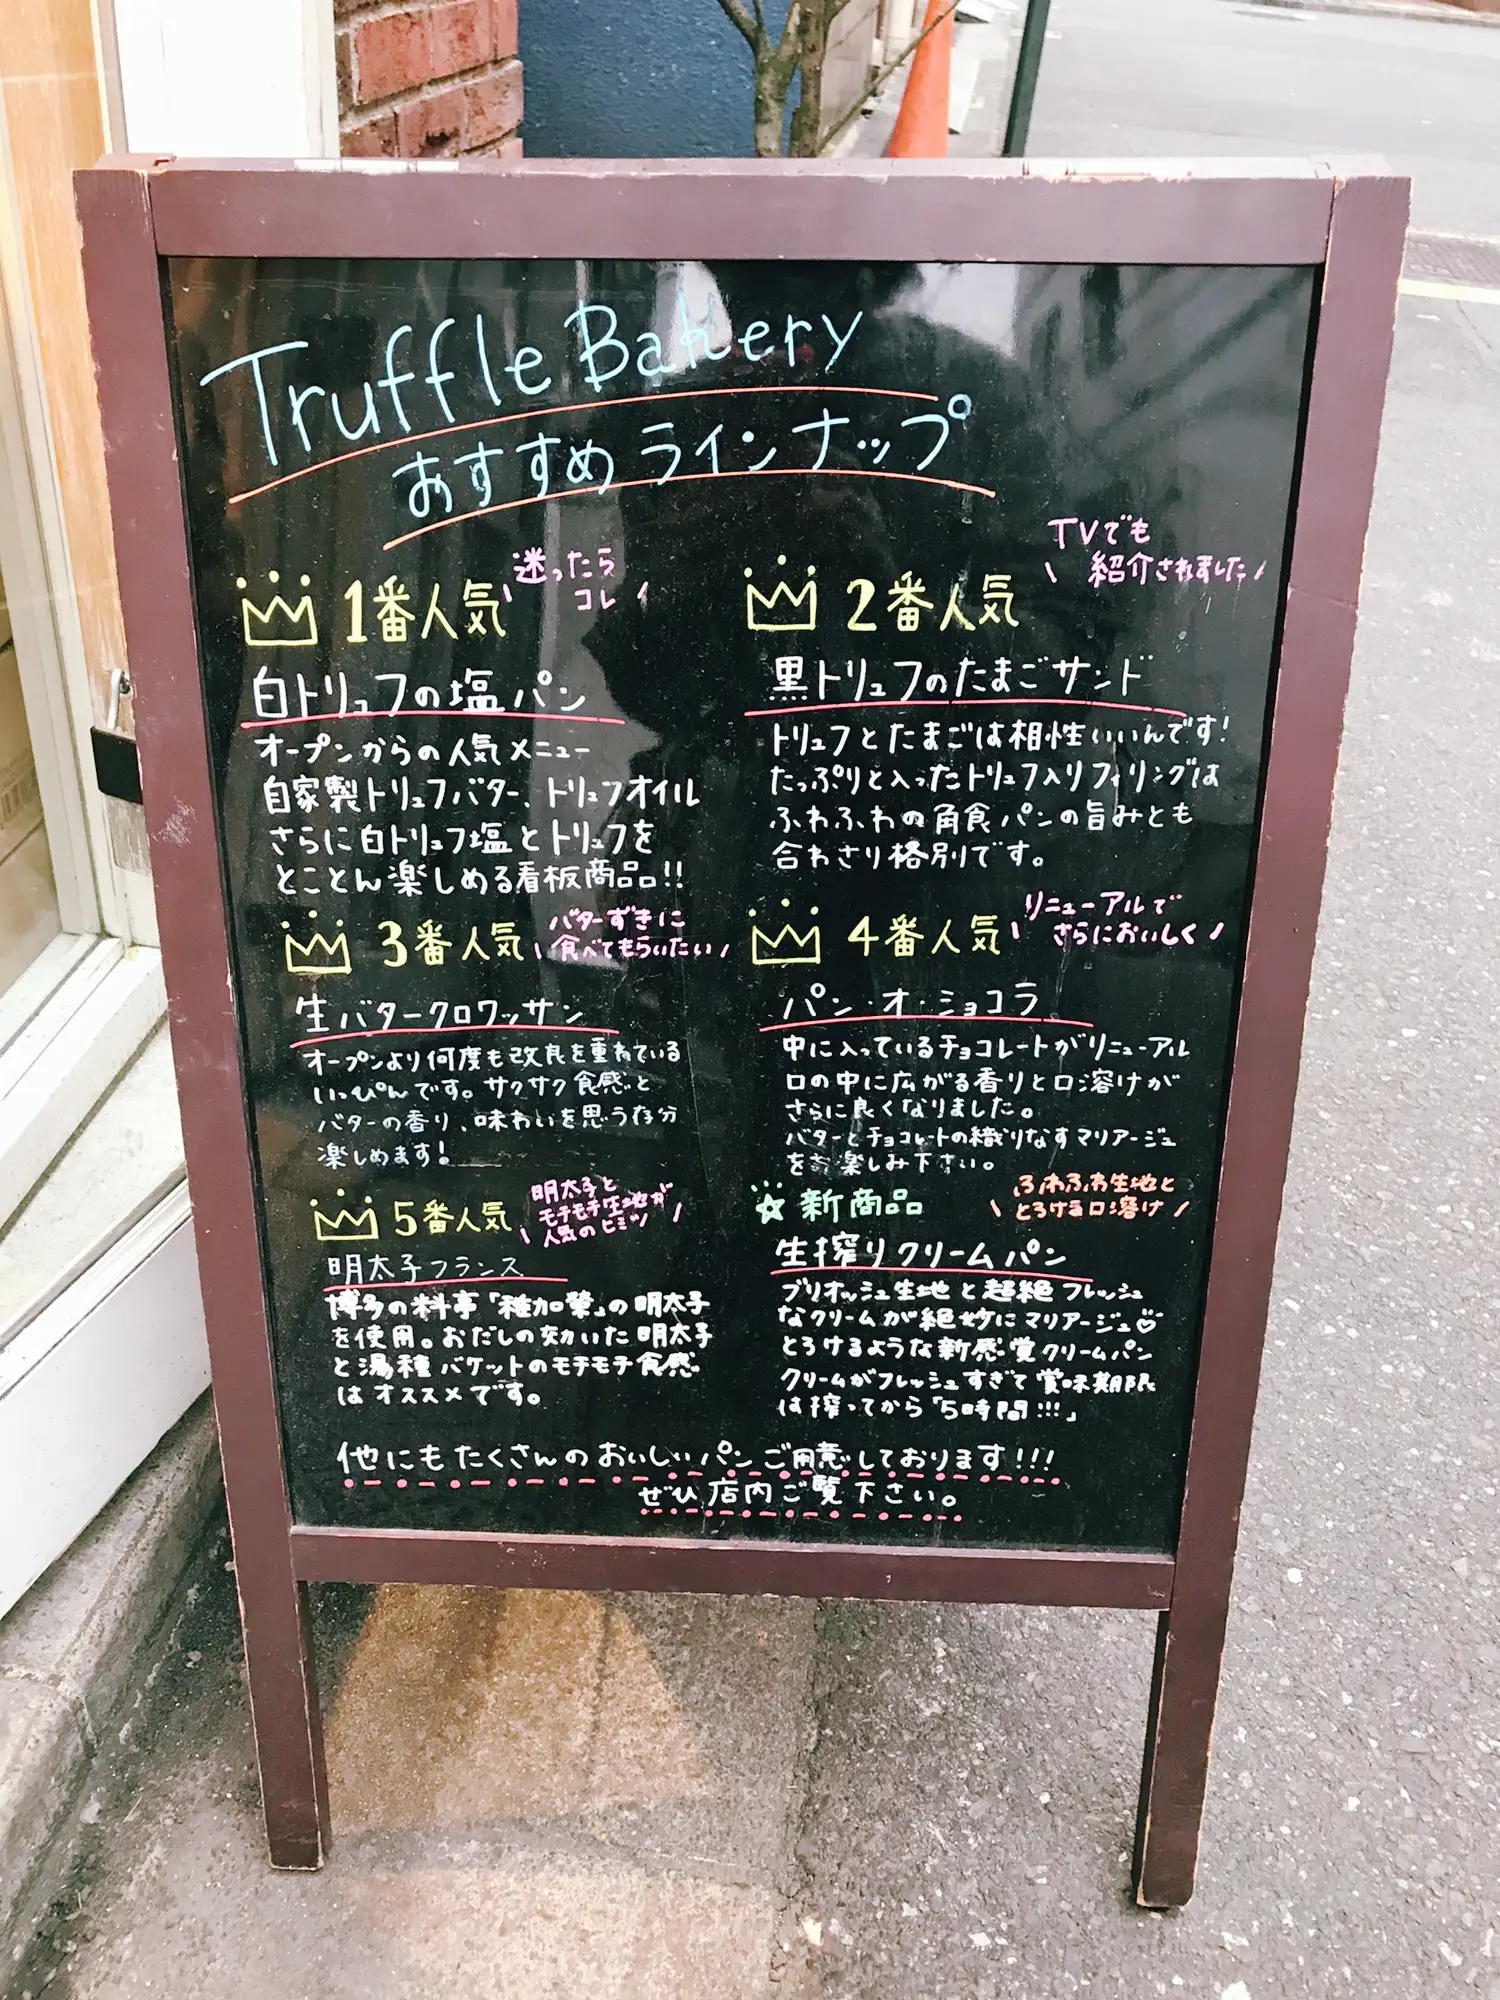 Truffle Bakery
おすすめラインナップ
1番人気
迷ったら
コレ
白トリュフの塩パン
オープンからの人気メニュー
自家製トリュフバター、トリュフオイル
さらに白トリュフ塩とトリュフを
とことん楽しめる看板商品!!
2番人気
TVでも
紹介されました
黒トリュフのたまごサンド
トリュフとたまごは相性いいんです!
たっぷりと入ったトリュフ入りフィリングは
ふわふわの角食パンの旨みとも
合わさり格別です。
3番人気
バターずきに
食べてもらいたい
生バタークロワッサン
オープンより何度も改良を重ねている
いっぴんです。サクサク食感と
バターの香り、味わいを思う存分
楽しめます!
4番人気
リニューアルで
さらにおいしく
パン・オ・ショコラ
中に入っているチョコレートがリニューアル
口の中に広がる香りと口溶けが
さらに良くなりました。
バターとチョコレートの織りなすマリアージュ
をお楽しみ下さい。
5番人気
明太子と
モチモチ生地が
人気のヒミツ
明太子フランス
博多の料亭「稚加榮」の明太子
を使用。おだしの効いた明太子
と湯種バケットのモチモチ食感
はオススメです。
新商品
ふわふわ生地と
とろける口溶け
生搾りクリームパン
ブリオッシュ生地と超絶フレッシュ
なクリームが絶妙にマリアージュ♡
とろけるような新感覚クリームパン
クリームがフレッシュすぎて賞味期限
は搾ってから「5時間!!!」
他にもたくさんのおいしいパンご用意しております!!!
ぜひ店内ご覧下さい。